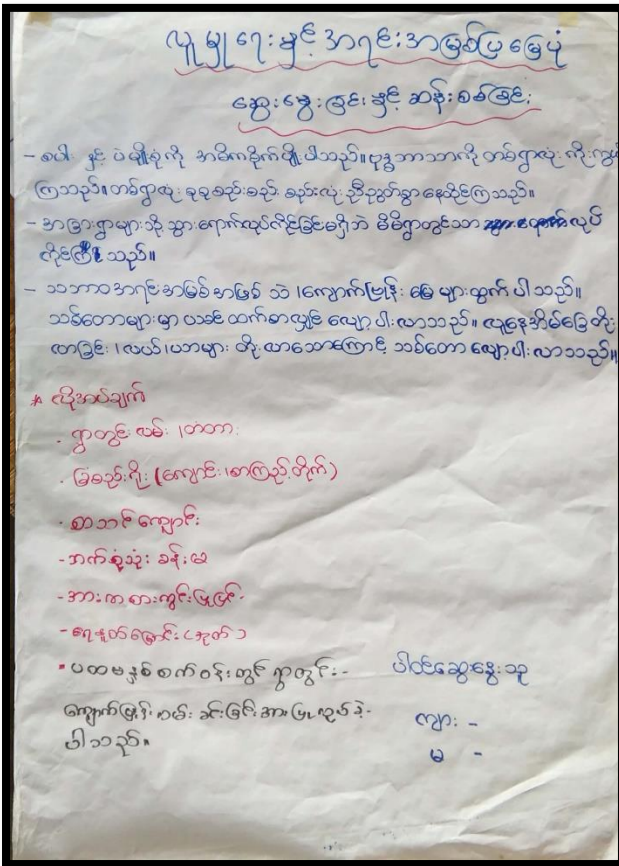 လူမှုရေးနှင့်အရင်းအမြစ်ပြမြေပုံ
ဆွေးနွေးခြင်းနှင့် ဆန်းစစ်ခြင်း
- စပါး နှင့် ပဲမျိုးစုံကို အဓိကစိုက်ပျိုးပါသည်။ဗုဒ္ဓဘာသာကို တစ်ရွာလုံး ကိုးကွယ်
ကြသည်။တစ်ရွာလုံး စုစုစည်းစည်း စည်းလုံး ညီညွတ်စွာနေထိုင်ကြသည်။
- အခြားရွာများသို့ သွားရောက်လုပ်ကိုင်ခြင်းမရှိဘဲ မိမိရွာတွင်သာ လုပ်
ကိုင်ကြ သည်။
- သဘာဝအရင်းအမြစ်အဖြစ် သဲ ၊ကျောက်ဗြုန်း မြေ များထွက်ပါသည်။
သစ်တောများမှာ ယခင်ထက်စာလျှင် လျော့ပါးလာသည်။ လူနေအိမ်ခြေတိုး
လာခြင်း ၊လယ် ၊ယာများ တိုးလာသောကြောင့် သစ်တော လျော့ပါးလာသည်။
* လိုအပ်ချက်
. ရွာတွင်းလမ်း ၊တံတား
. ခြံစည်းရိုး (ကျောင်း ၊စာကြည့်တိုက်)
. စာသင်ကျောင်း
-ဘက်စုံသုံး ခန်းမ
-အားကစားကွင်းပြုပြင်-
-ရေနုတ်မြောင်း (အုတ်)
▪ ပထမနှစ်စက်ဝန်းတွင် ရွာတွင်း-
ကျောက်ဗြုန်းလမ်း ခင်းခြင်းအားပြုလုပ်ခဲ့-
ပါသည်။
ပါဝင်ဆွေးနွေးသူ
ကျား -
မ -